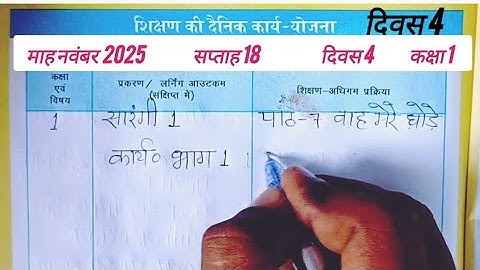 शिक्षण की दैनिक कार्य-योजना
दिवस 4
माह नवंबर 2025 सप्ताह 18 दिवस 4 कक्षा 1
कक्षा एवं विषय
प्रकरण/ लर्निंग आउटकम (संक्षिप्त में)
शिक्षण-अधिगम प्रक्रिया
1 सारंगी 1 पाठ-7 वाह मेरे घोड़े
कार्य० भाग 1